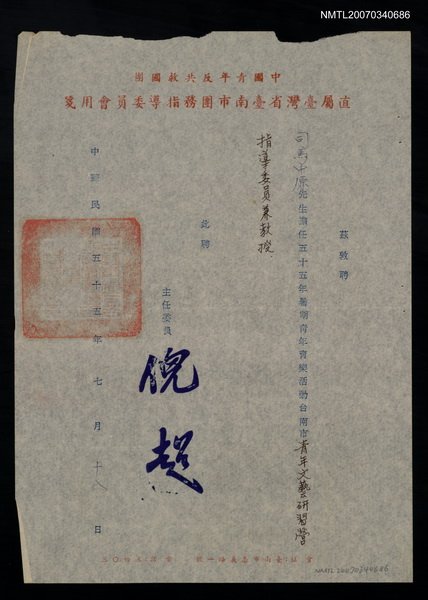 NMTL20070340686
中國青年反共救國團
直屬臺灣省臺南市團務指導委員會用箋
茲敦聘
司馬中原先生擔任五十五年暑期青年育樂活動台南市青年文藝研習營
指導委員兼教授
此聘
主任委員
倪超
中華民國五十五年七月十八日
NMTL20070340686